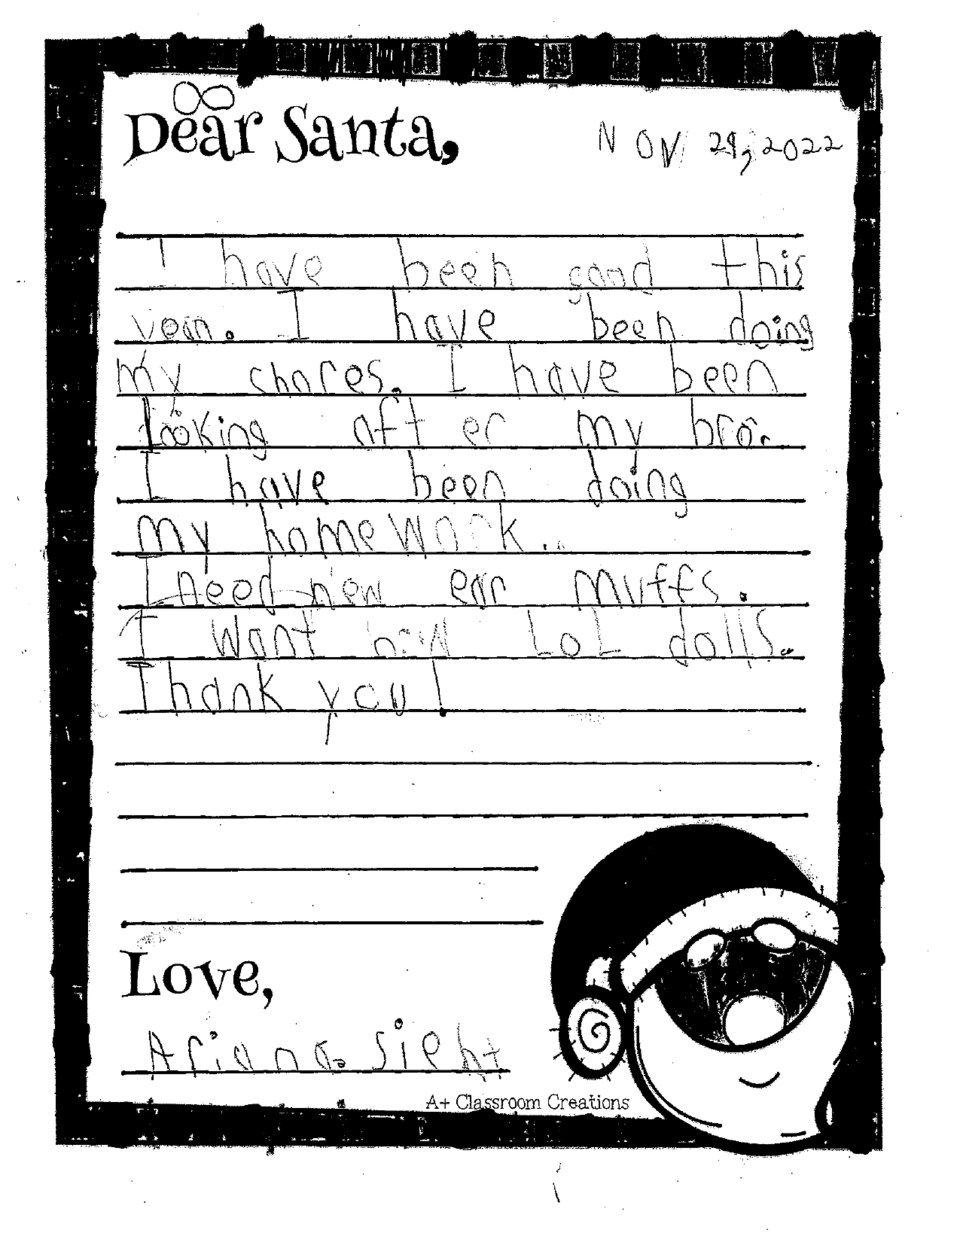 Dear Santa,
Nov 29, 2022
I have been good this
year. I have been doing
my chores. I have been
looking after my bro.
I have been doing
my homework..
I need new ear muffs.
I want new LoL dolls.
Thank you!
Love,
Ariana Sieht
A+ Classroom Creations